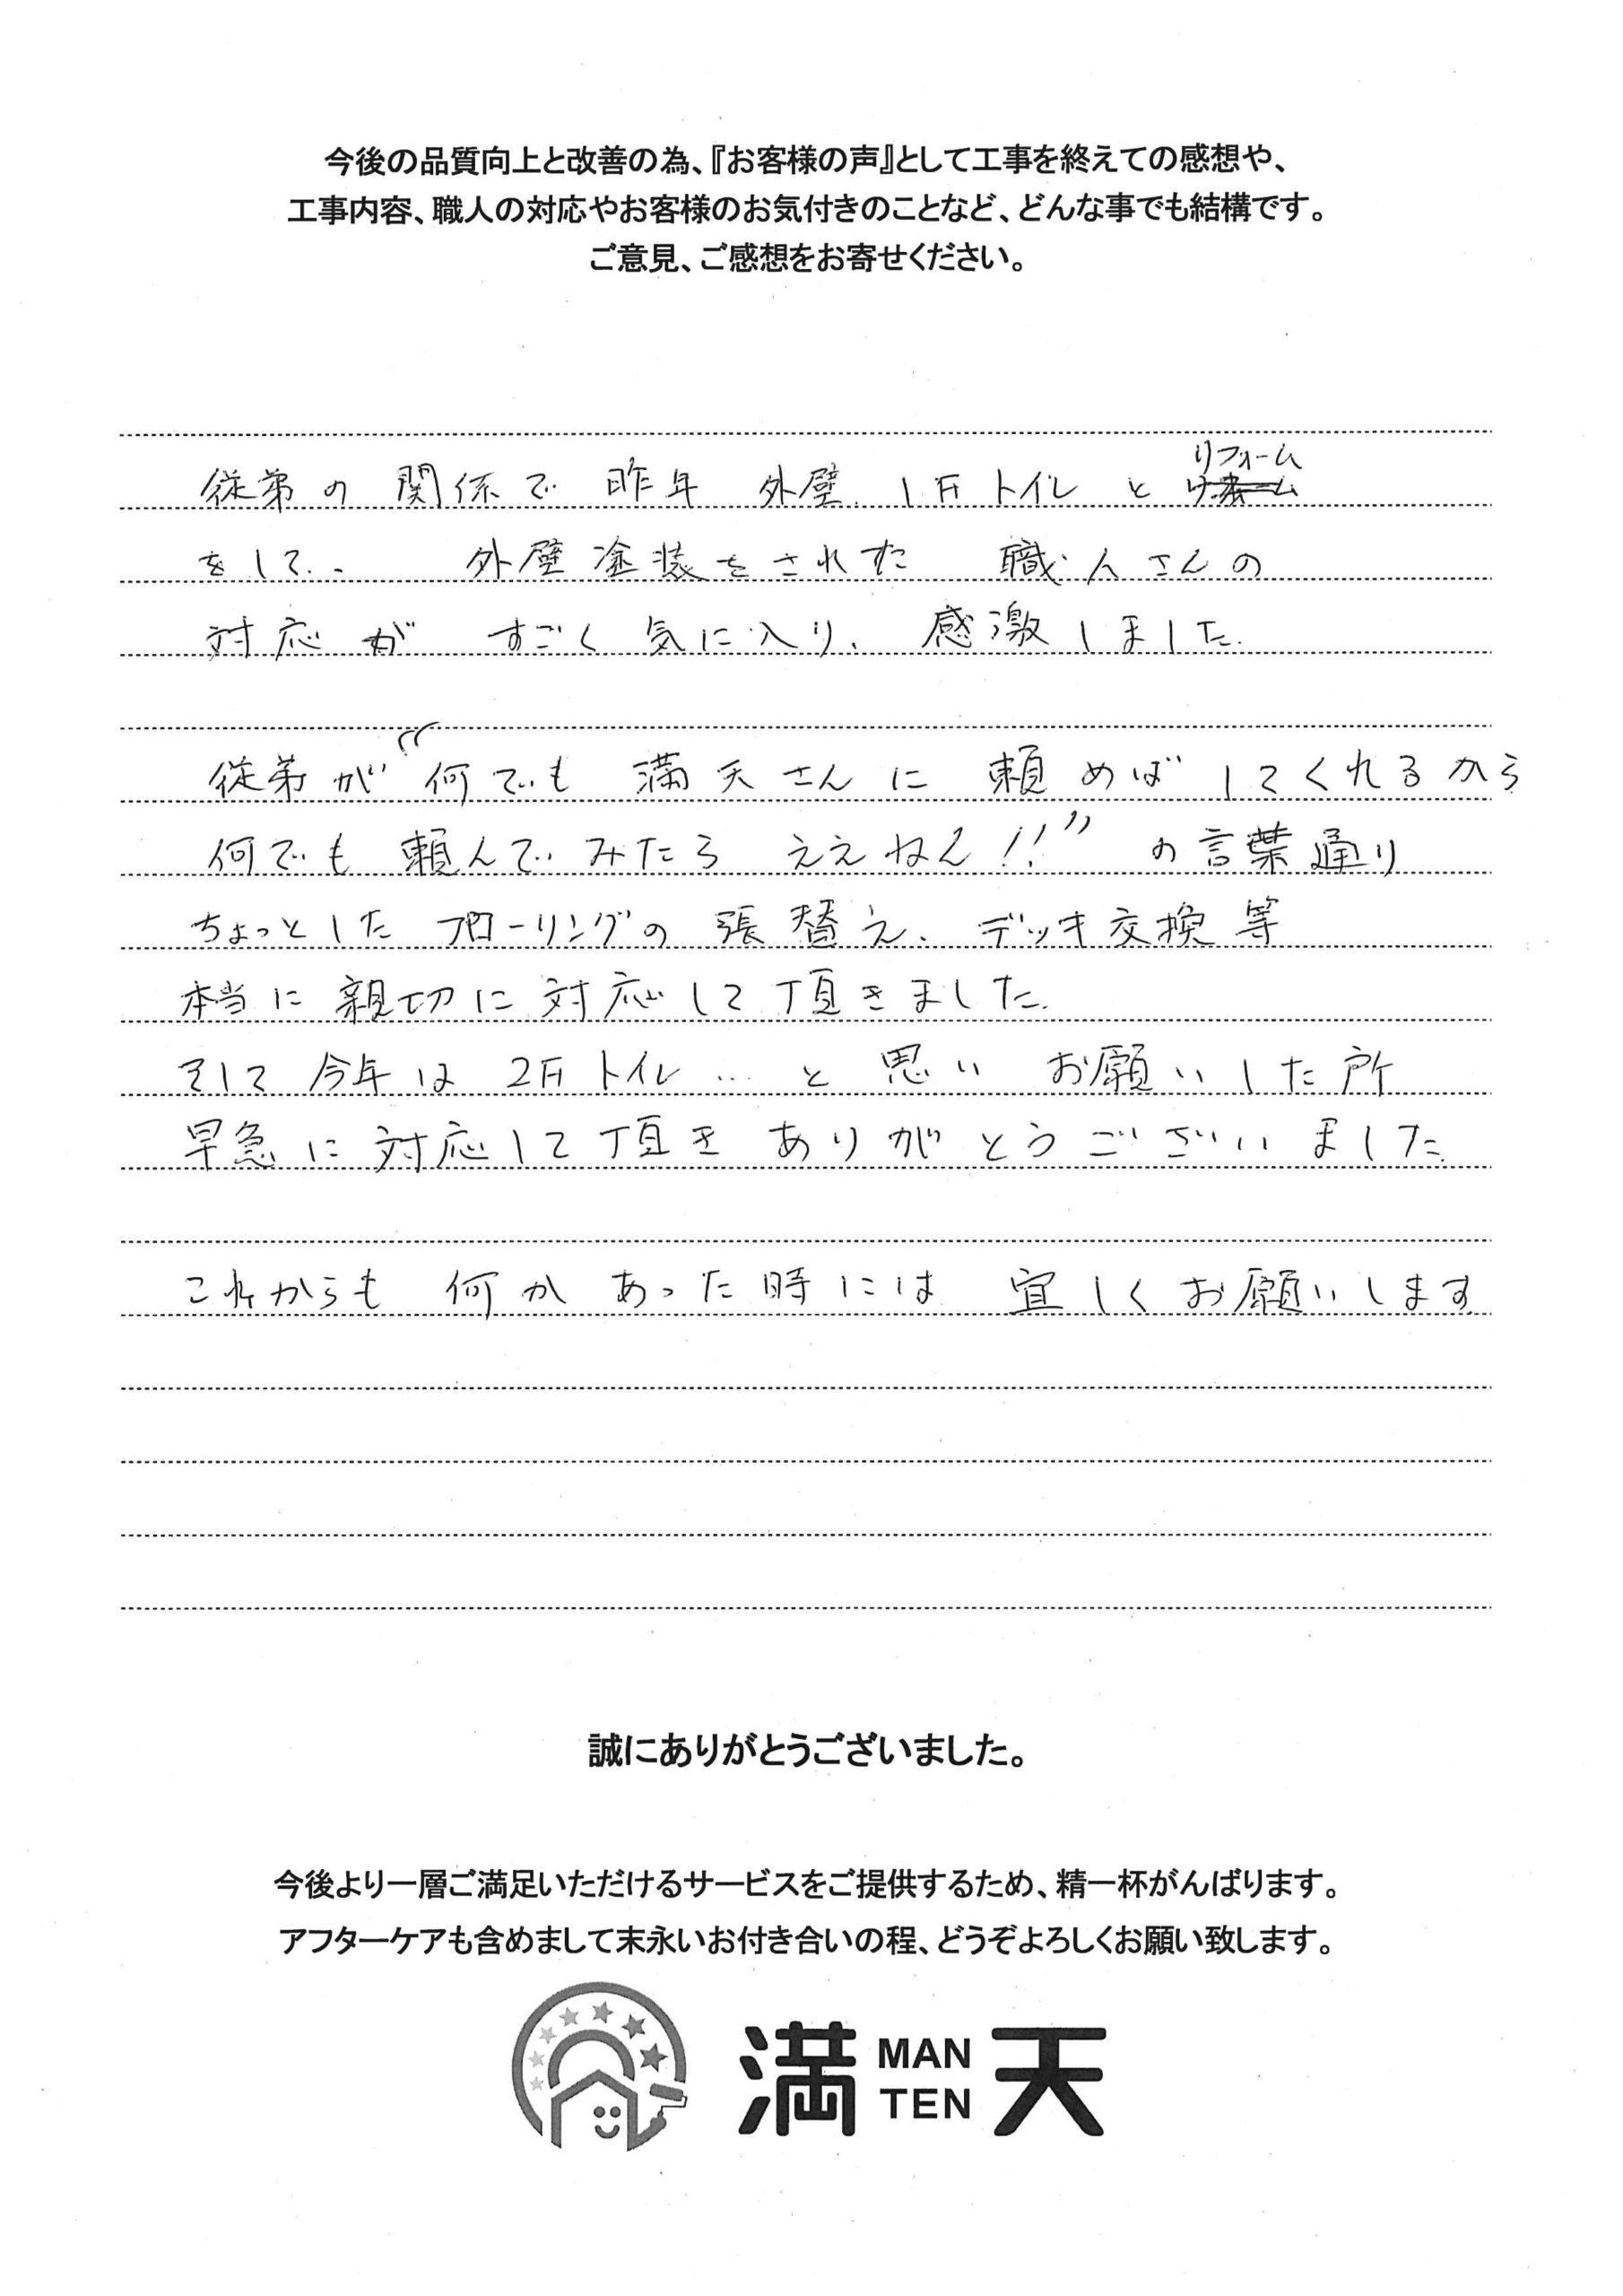 今後の品質向上と改善の為、『お客様の声』として工事を終えての感想や、
工事内容、職人の対応やお客様のお気付きのことなど、どんな事でも結構です。
ご意見、ご感想をお寄せください。
従弟の関係で昨年 外壁、1F トイレ と リフォーム
をして、 外壁塗装をされた 職人さんの
対応が すごく気に入り、感激しました。
従弟が “何でも 満天さんに 頼めば してくれるから
何でも 頼んで みたら ええねん!!” の言葉通り
ちょっとした フローリングの 張替え、デッキ交換等
本当に 親切に 対応して頂きました。
そして今年は 2F トイレ… と 思い お願いした所
早急に対応して頂き ありがとうございました。
これからも 何か あった時には 宜しくお願いします
誠にありがとうございました。
今後より一層ご満足いただけるサービスをご提供するため、精一杯がんばります。
アフターケアも含めまして末永いお付き合いの程、どうぞよろしくお願い致します。
満 MAN TEN 天